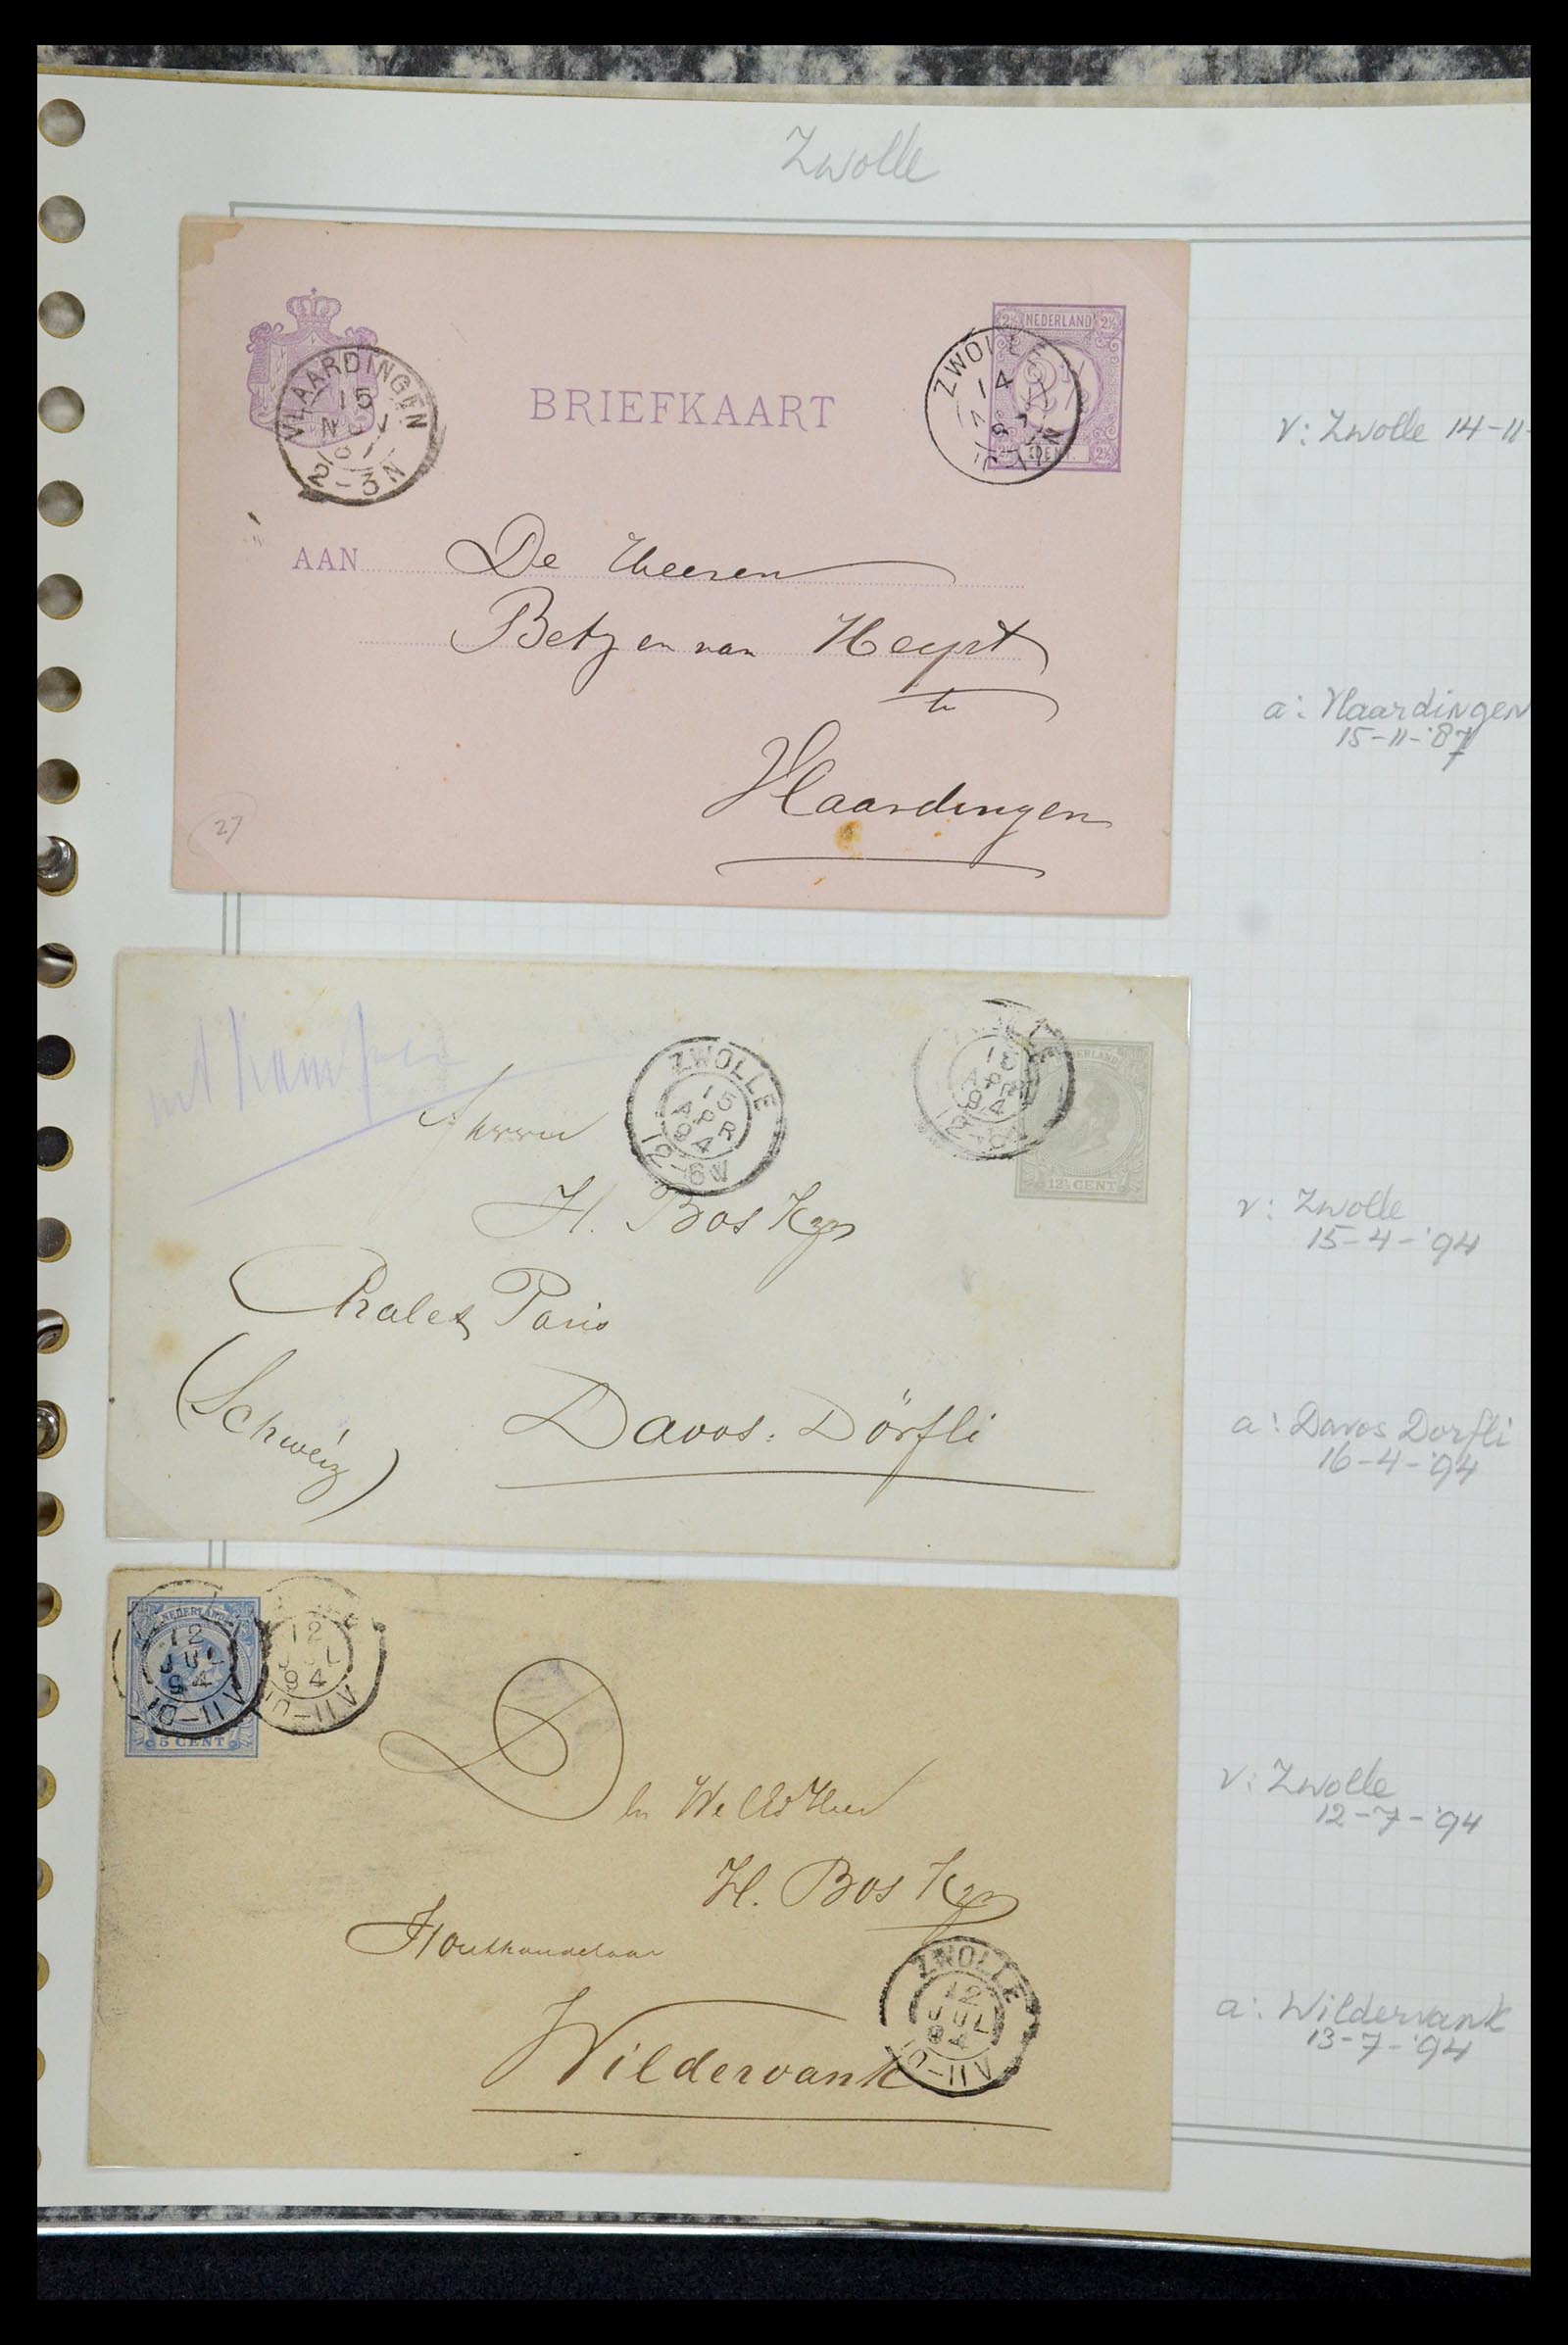 Zwolle
NEDERLAND
2½
CENT.
VLAARDINGEN
15
NOV
2-3N
BRIEFKAART
ZWOLLE
14
v: Zwolle 14-11-
AAN De Heeren
Betz en van Heyst
te
Vlaardingen
27
a: Vlaardingen
15-11-'87
ZWOLLE
15
APR
94
12-6V
15
APR
94
12½ CENT
Herrn
H. Bos Kzn
Chalet Paris
(Schweiz)
Davos-Dörfli
v: Zwolle
15-4-'94
a: Davos Dorfli
16-4-'94
NEDERLAND
12
JUL
94
10-11V
5 CENT
12
JUL
94
10-11V
Den WelEd Heer
H. Bos Kzn
Houthandelaar
Wildervank
ZWOLLE
12
JUL
94
10-11V
v: Zwolle
12-7-'94
a: Wildervank
13-7-'94